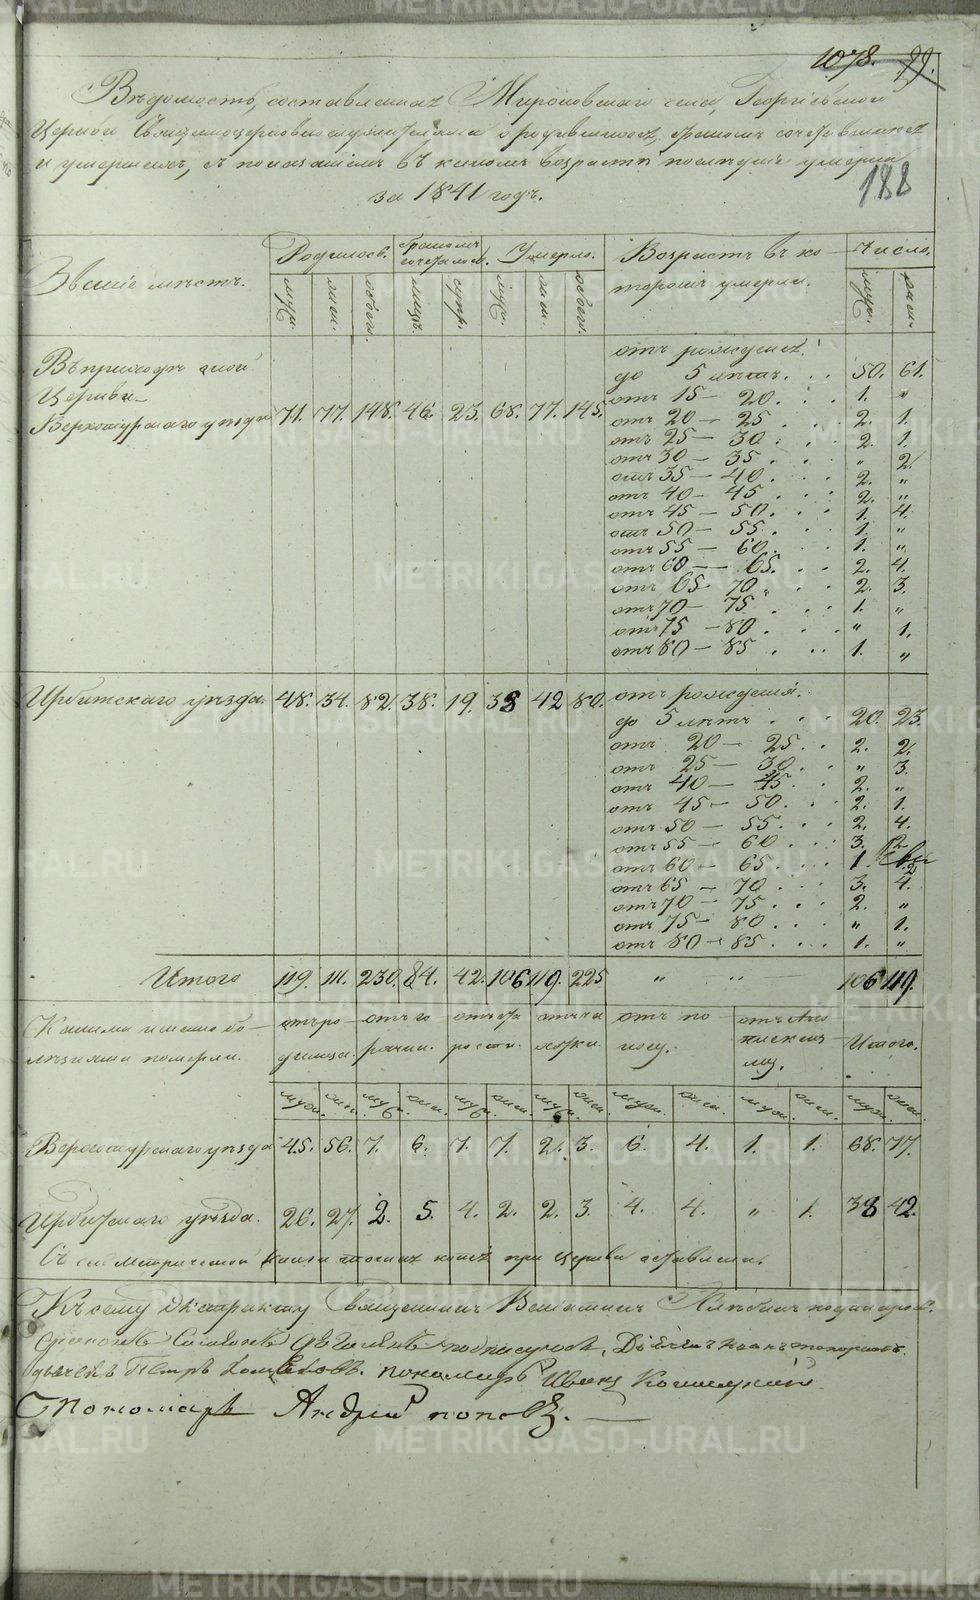 1078. 99.
188
Вѣдомость, составленная Мироновскаго села, Георгіевской
Церкви Священноцерковнослужителями о родившихся, бракомъ сочетавшихся
и умершихъ, съ показаніемъ въ какомъ возрастѣ послѣдніе умерли
за 1841 годъ.
Званіе мѣстъ. Родилось. бракомъ сочеталось. Умерло. Возрастъ въ ко- Число.
торомъ умерли.
муж. жен. обоего. лицъ. супр. муж. жен. обоего. муж. жен.
Въ приходѣ оной
Церкви
Верхотурскаго уѣзда 71. 77. 148. 46. 23. 68. 77. 145.
отъ рожденія
до 5 лѣтъ. 50. 61.
отъ 15 — 20. 1. "
отъ 20 — 25 2. 1.
отъ 25 — 30. 2. 1.
отъ 30 — 35. " 2.
отъ 35 — 40. 2. "
отъ 40 — 45 2. "
отъ 45 — 50. 1. 4.
отъ 50 — 55. 1. "
отъ 55 — 60. 1. "
отъ 60 — 65. 2. 4.
отъ 65 - 70. 2. 3.
отъ 70 — 75 1. "
отъ 75 — 80. " 1.
отъ 80 — 85. 1. "
Ирбитскаго уѣзда. 48. 34. 82. 38. 19. 38 42 80.
отъ рожденія
до 5 лѣтъ 20. 23.
отъ 20 — 25. 2. 2.
отъ 25 — 30. " 3.
отъ 40 — 45. 2. "
отъ 45 — 50. 2. 1.
отъ 50 — 55. 2. 4.
отъ 55 — 60 3. 2.
отъ 60 — 65. 1.
отъ 65 — 70 3. 4.
отъ 70 — 75 2. "
отъ 75 — 80 " 1.
отъ 80 — 85. 1. "
Итого 119. 111. 230. 84. 42. 106 119. 225 " " 106 119.
Какими именно бо-
лѣзнями померли.
отъ ро-
димца.
отъ го-
рячки.
отъ ста-
рости.
отъ ча-
хотки.
отъ по-
носу.
Итого.
муж. жен. муж. жен. муж. жен. муж. жен. муж. жен. муж. жен. муж. жен.
Верхотурскаго уѣзда 45. 56. 7. 6. 7. 7. 2. 3. 6. 4. 1. 1. 68. 77.
Ирбитскаго уѣзда. 26. 27. 2. 5. 4. 2. 2. 3. 4. 4. " 1. 38 42.
Съ сей метрической книги точная копія при Церкви оставлена.
Къ сему экстракту Священникъ Веніаминъ подписуюсь.
Пономарь Иванъ
Пономарь Андрей Поповъ.
METRIKI.GASO-URAL.RU